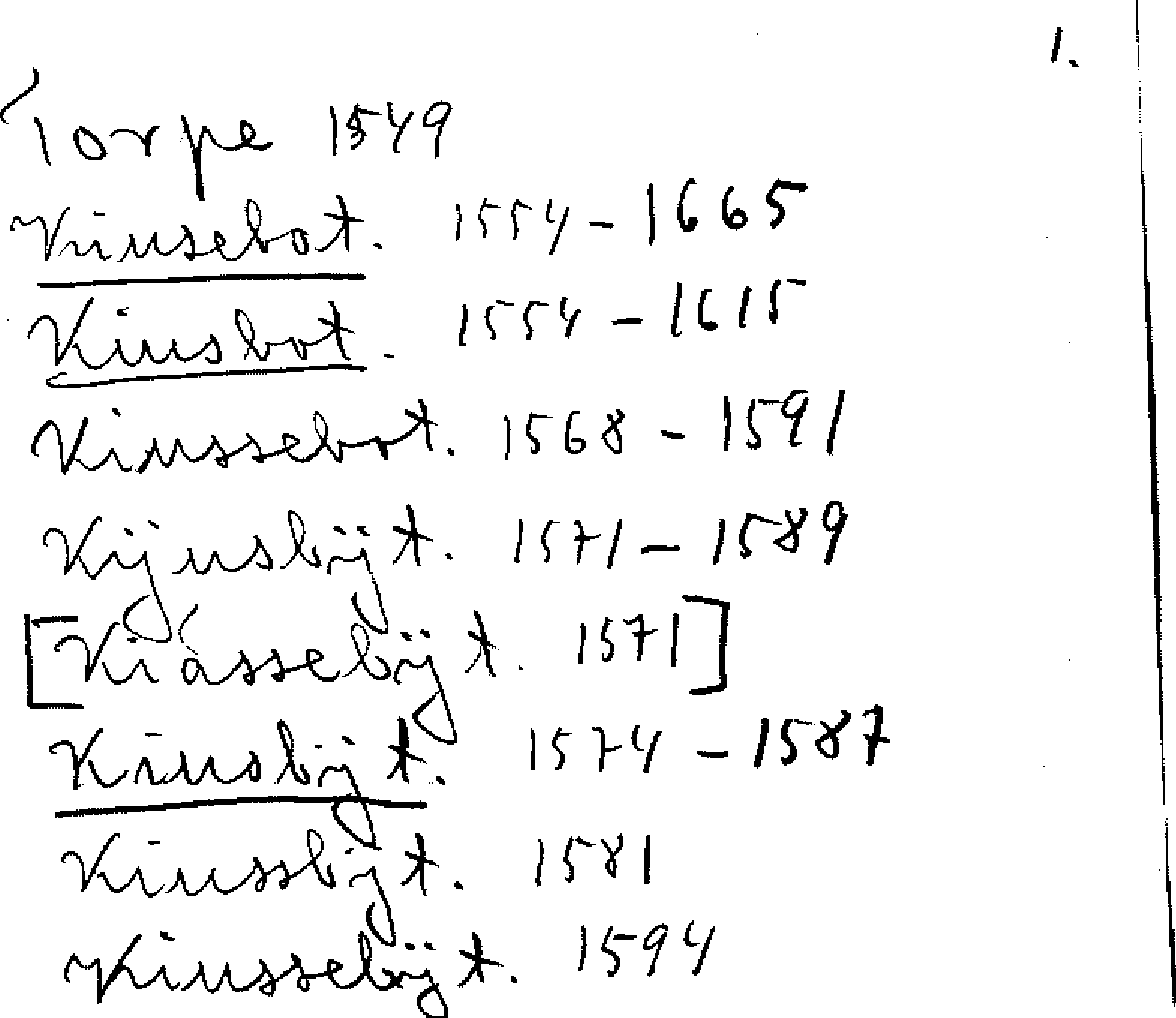 1.
Torpe 1549
Kiusebot. 1554 – 1665
Kiusbot. 1554 – 1615
Kiussebot. 1568 – 1591
Kijusbijt. 1571 – 1589
[Kiåssebijt. 1571]
Kiusbijt. 1574 – 1587
Kiussbijt. 1581
Kiussebijt. 1594